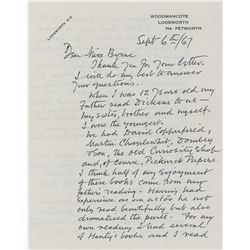 LODSWORTH 212
WOODMANCOTE
LODSWORTH
Nr PETWORTH
Sept 6th/67
Dear Miss Byrne
Thank you for your letter.
I will do my best to answer
your questions.
When I was 12 years old my
Father read Dickens to us —
my sister, brother and myself.
I was the youngest.
We had David Copperfield,
Martin Chuzzlewit, Dombey
& Son, The old Curiosity Shop
and, of course, Pickwick Papers.
I think half of my enjoyment
of these books came from my
father's reading - Having had
experience as an actor he not
only read beautifully but also
dramatised the parts. For my
own reading I had several
of Henty's books and I read